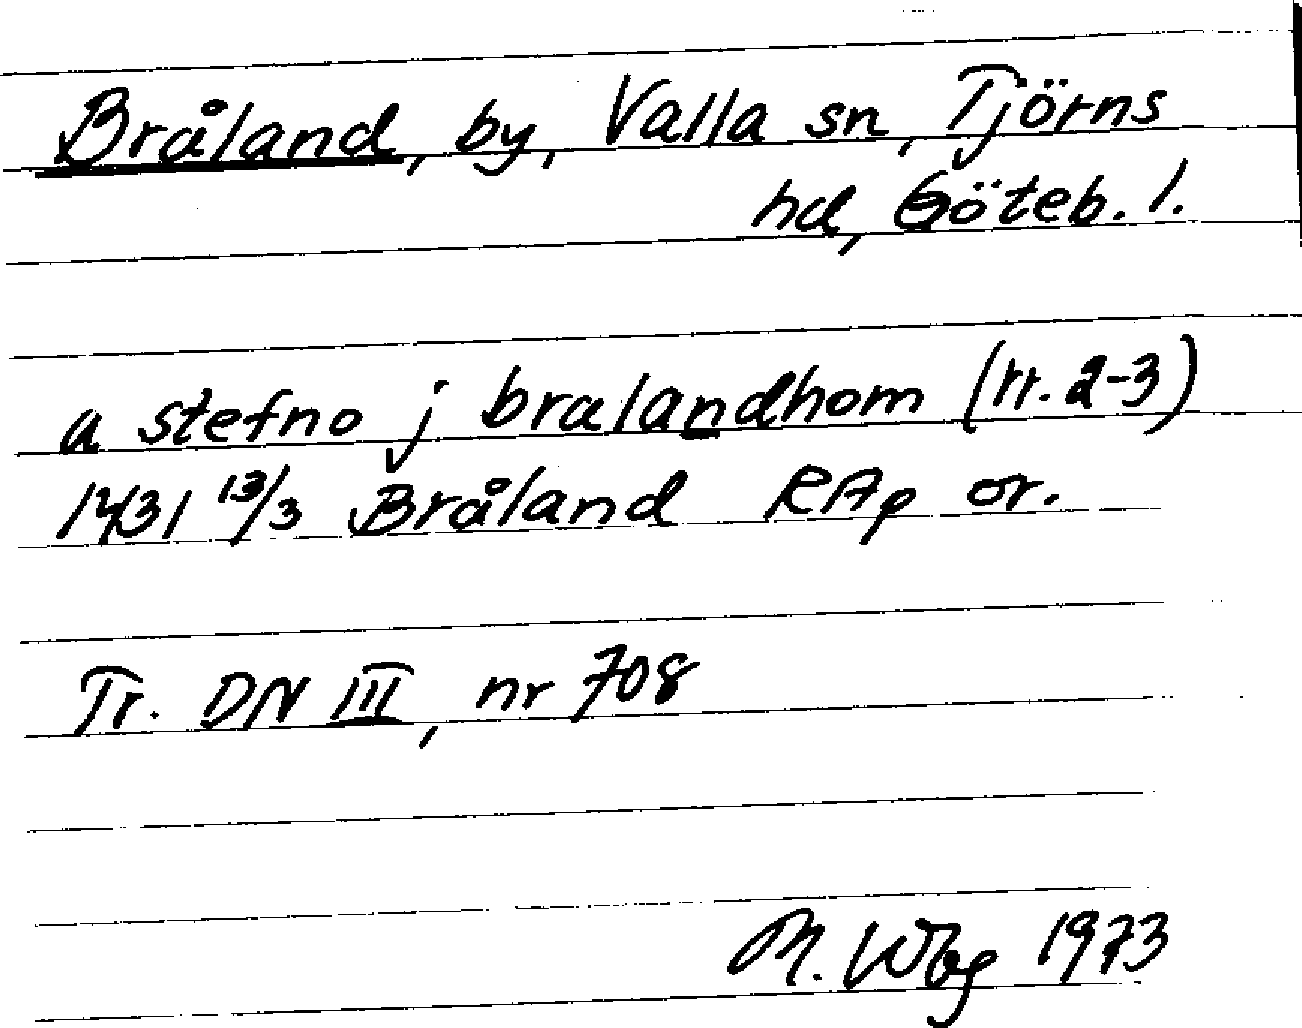 Bråland, by, Valla sn, Tjörns
hd, Göteb. l.
a stefno j bralandhom (rr. 2-3)
1431 13/3 Bråland RAp or.
Tr. DN III, nr 708
M. Wbg 1973